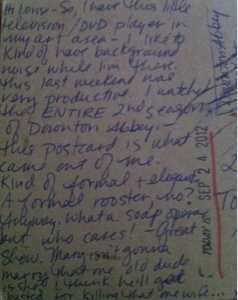 Hi Louise - So, I have this little
television/DVD player in
my art area - I like to
kind of have background
noise while im there.
This last weekend was
very productive. I watched
the ENTIRE 2nd season
of Downton Abbey -
this postcard is what
came out of me.
Kind of formal + elegant.
A formal rooster, who?
Anyway, what a soap opera
but who cares! - Great
Show. Mary isn't gonna
marry that one old dude
is she? I think he'll get
busted for killing that one wife...
Downton Abbey
TODAY IS SEP 24 2012
To